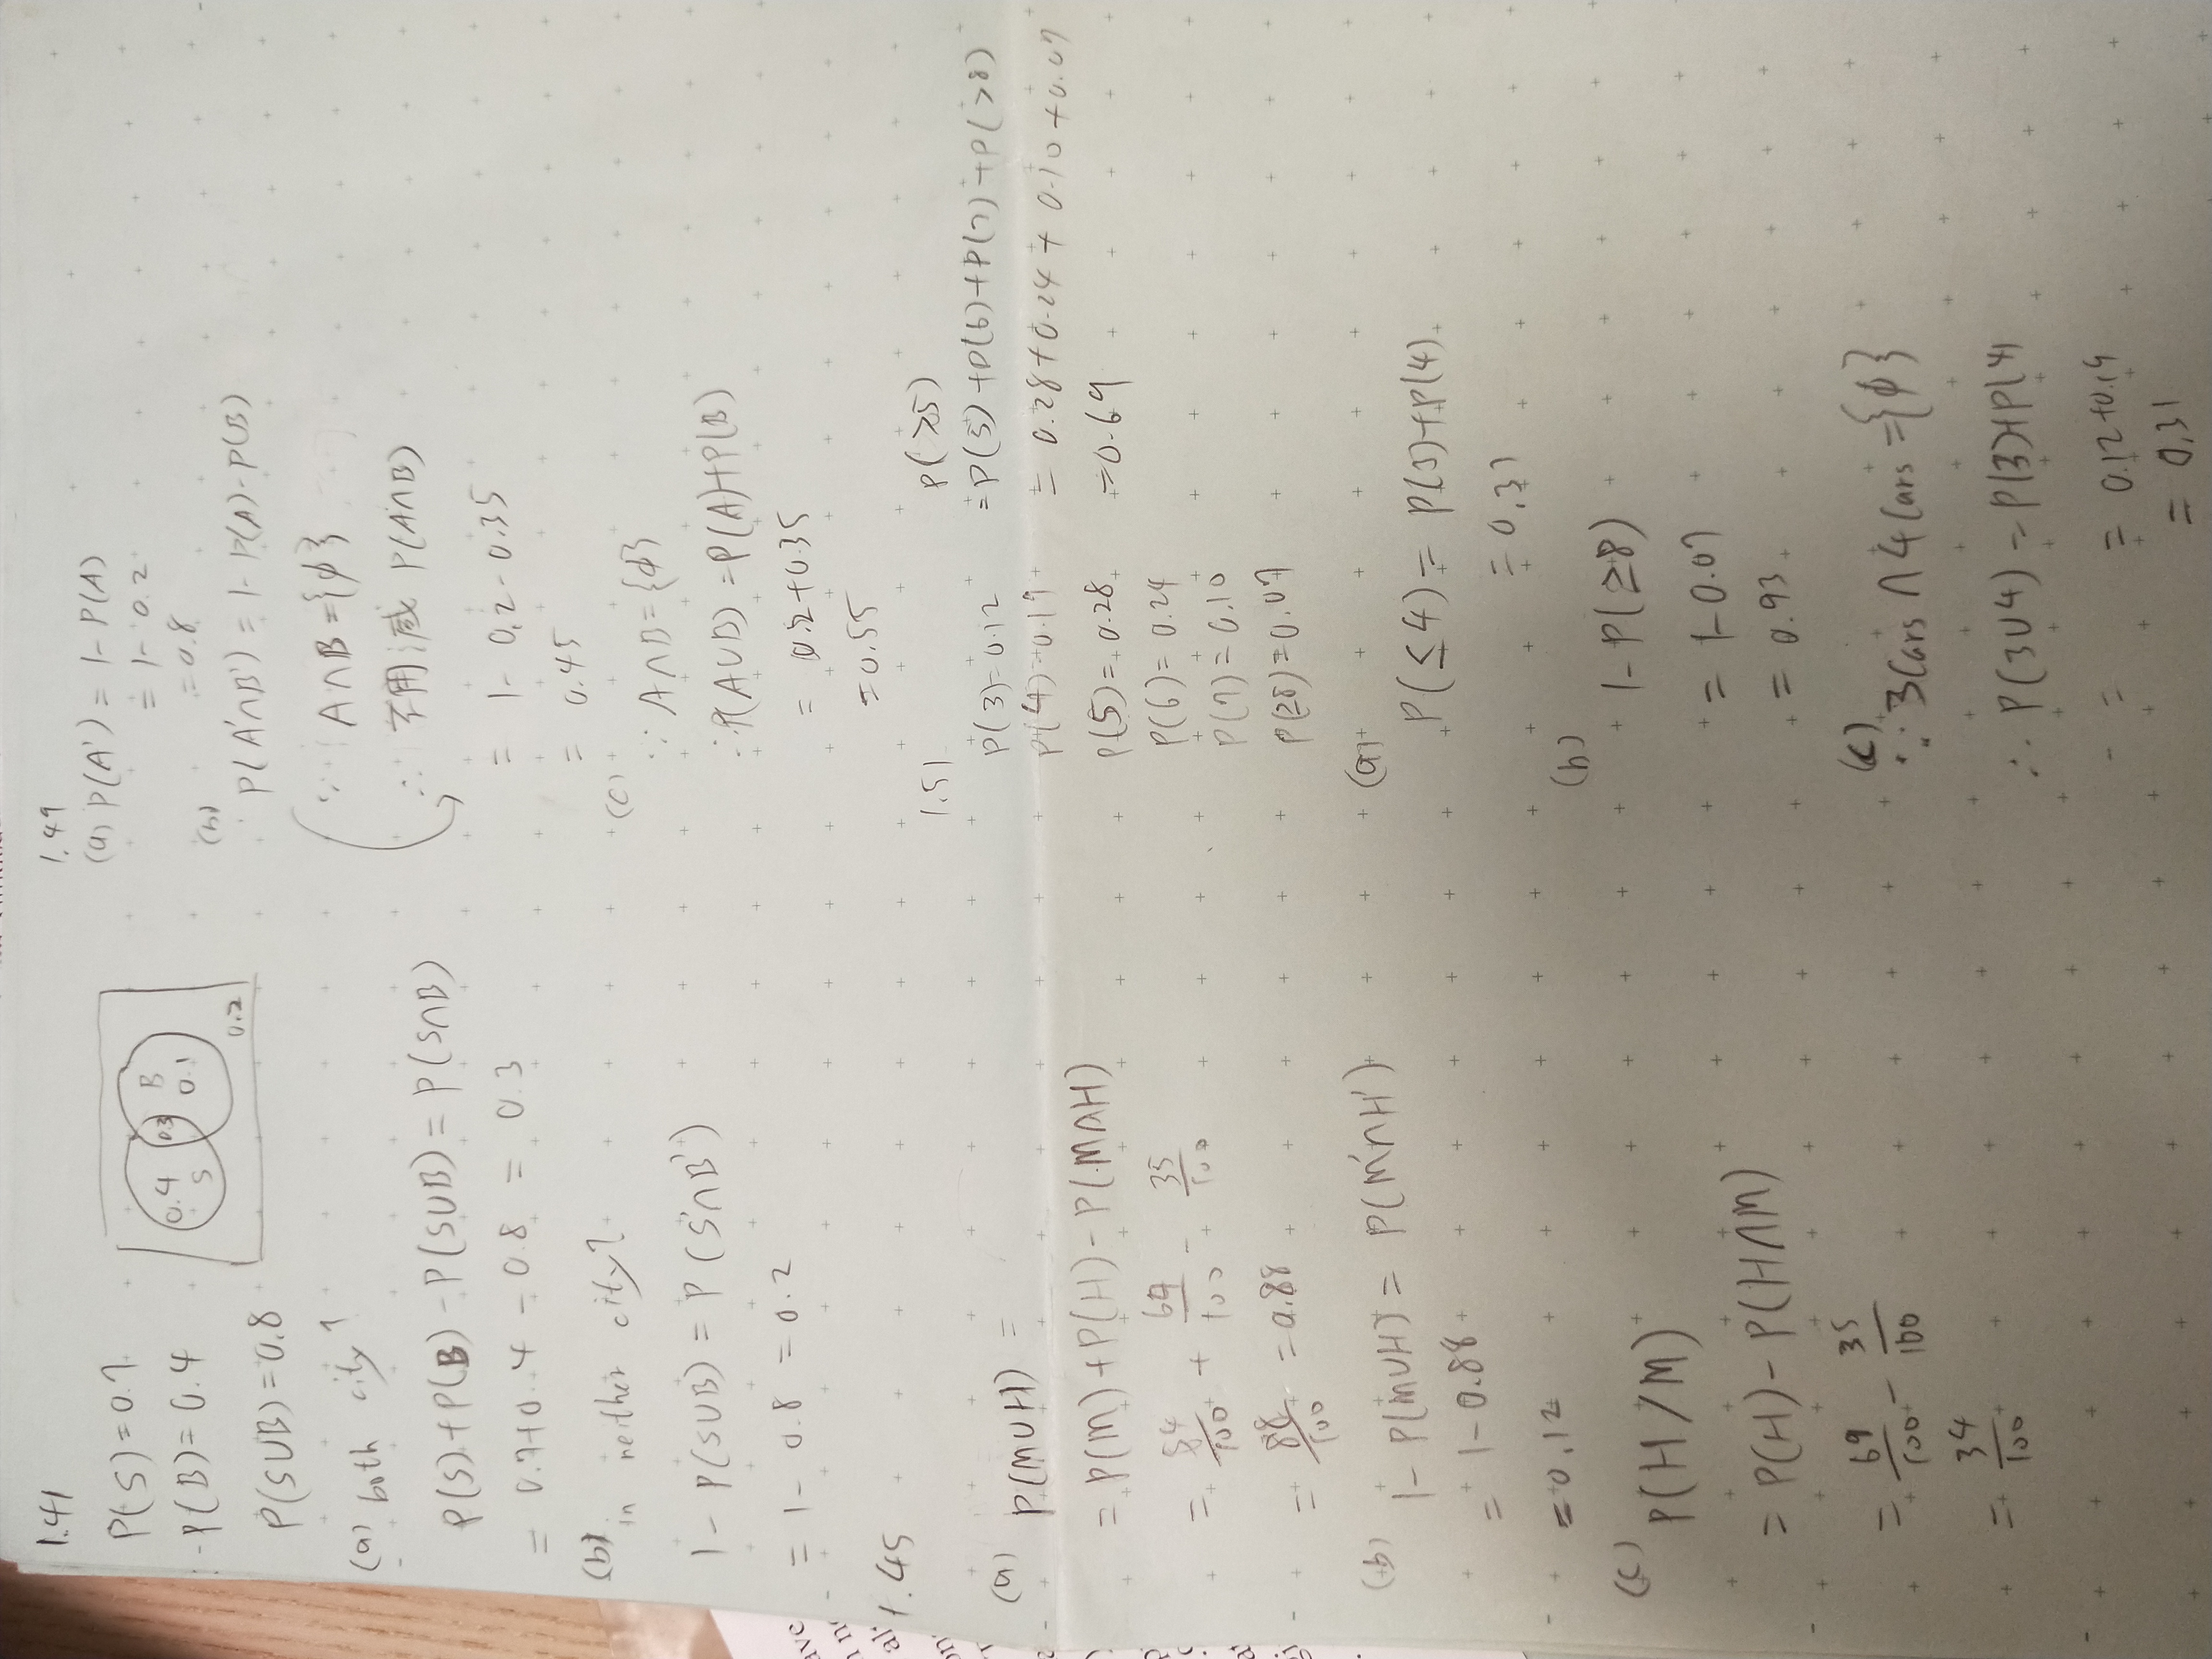 1.41
P(S)=0.7
P(B)=0.4
P(S∪B)=0.8
0.4
S
0.3
B
0.1
0.2
(a) both city?
P(S)+P(B)-P(S∪B)=P(S∩B)
= 0.7+0.4-0.8 = 0.3
(b) in neither city?
1-P(S∪B)=P(S'∩B')
= 1-0.8 = 0.2
1.45
(a) P(M∪H) =
= P(M)+P(H)-P(M∩H)
= 54/100 + 69/100 - 35/100
= 88/100 = 0.88
(b) 1-P(M∪H) = P(M'∩H')
= 1-0.88
= 0.12
(c) P(H/M)
= P(H)-P(H∩M)
= 69/100 - 35/100
= 34/100
1.49
(a) P(A') = 1-P(A)
= 1-0.2
= 0.8
(b)
P(A'∩B') = 1-P(A)-P(B)
∵ A∩B={ϕ}
∴ 不用減 P(A∩B)
= 1-0.2-0.35
= 0.45
(c)
∵ A∩B={ϕ}
∴ P(A∪B) = P(A)+P(B)
= 0.2+0.35
= 0.55
1.51
P(3)=0.12
P(4)=0.19
P(5)=0.28
P(6)=0.24
P(7)=0.10
P(≥8)=0.07
P(≥5)
= P(5)+P(6)+P(7)+P(>8)
= 0.28+0.24+0.10+0.07
= 0.69
(a)
P(≤4) = P(3)+P(4)
= 0.31
(b)
1-P(≥8)
= 1-0.07
= 0.93
(c)
∵ 3Cars ∩ 4Cars = {ϕ}
∴ P(3∪4) = P(3)+P(4)
= = 0.12+0.19
= 0.31